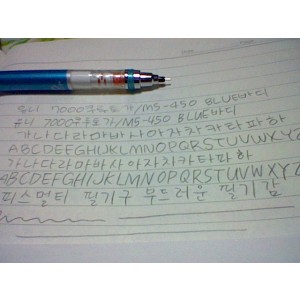 7000 /M5-450 BLUE바디
7000 /M5-450 BLUE바디
가나다라마바사아자차카타파하
ABCDEFGHIJKLMNOPQRSTUVWXYZ
가나다라마바사아자차카타파하
ABCDEFGHIJKLMNOPQRSTUVWXYZ
피스멀티 필기구 부드러운 필기감